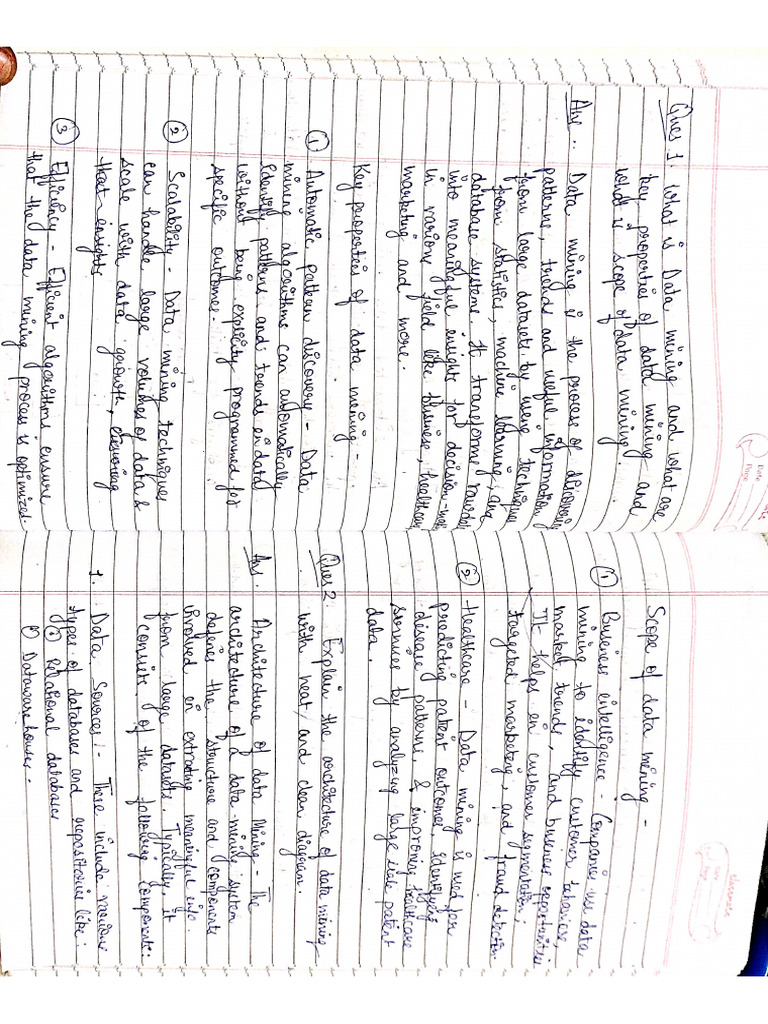 Ques 1. What is Data mining and what are
key properties of data mining and
what is scope of data mining.
Ans.. Data mining is the process of discovering
patterns, trends and useful information
from large datasets by using techniques
from statistics, machine learning, and
database systems. It transforms raw data
into meaningful insights for decision-making
in various field like business, healthcare
marketing and more.
Key properties of data mining -
① Automatic pattern discovery - Data
mining algorithms can automatically
identify patterns and trends in data
without being explicitly programmed for
specific outcomes.
② Scalability - Data mining techniques
can handle large volumes of data &
scale with data growth, ensuring
that insights
③ Efficiency - Efficient algorithms ensure
that the data mining process is optimized.
Date
Page
Scope of data mining -
① Business intelligence - Companies use data
mining to identify customer behaviour
market trends, and business opportunities
It helps in customer segmentation,
targeted marketing, and fraud detection
② Healthcare - Data mining is used for
predicting patient outcomes, identifying
disease patterns, & improving healthcare
services by analyzing large scale patient
data.
Ques 2. Explain the architecture of data mining
with neat and clean diagram.
Ans. Architecture of data Mining - The
architecture of a data mining system
defines the structure and components
involved in extracting meaningful info.
from large datasets. Typically, it
consists of the following components:
1. Data Sources:- These include various
types of databases and repositories like:
② Relational databases
① Dataware houses.
classmate
Date
Page